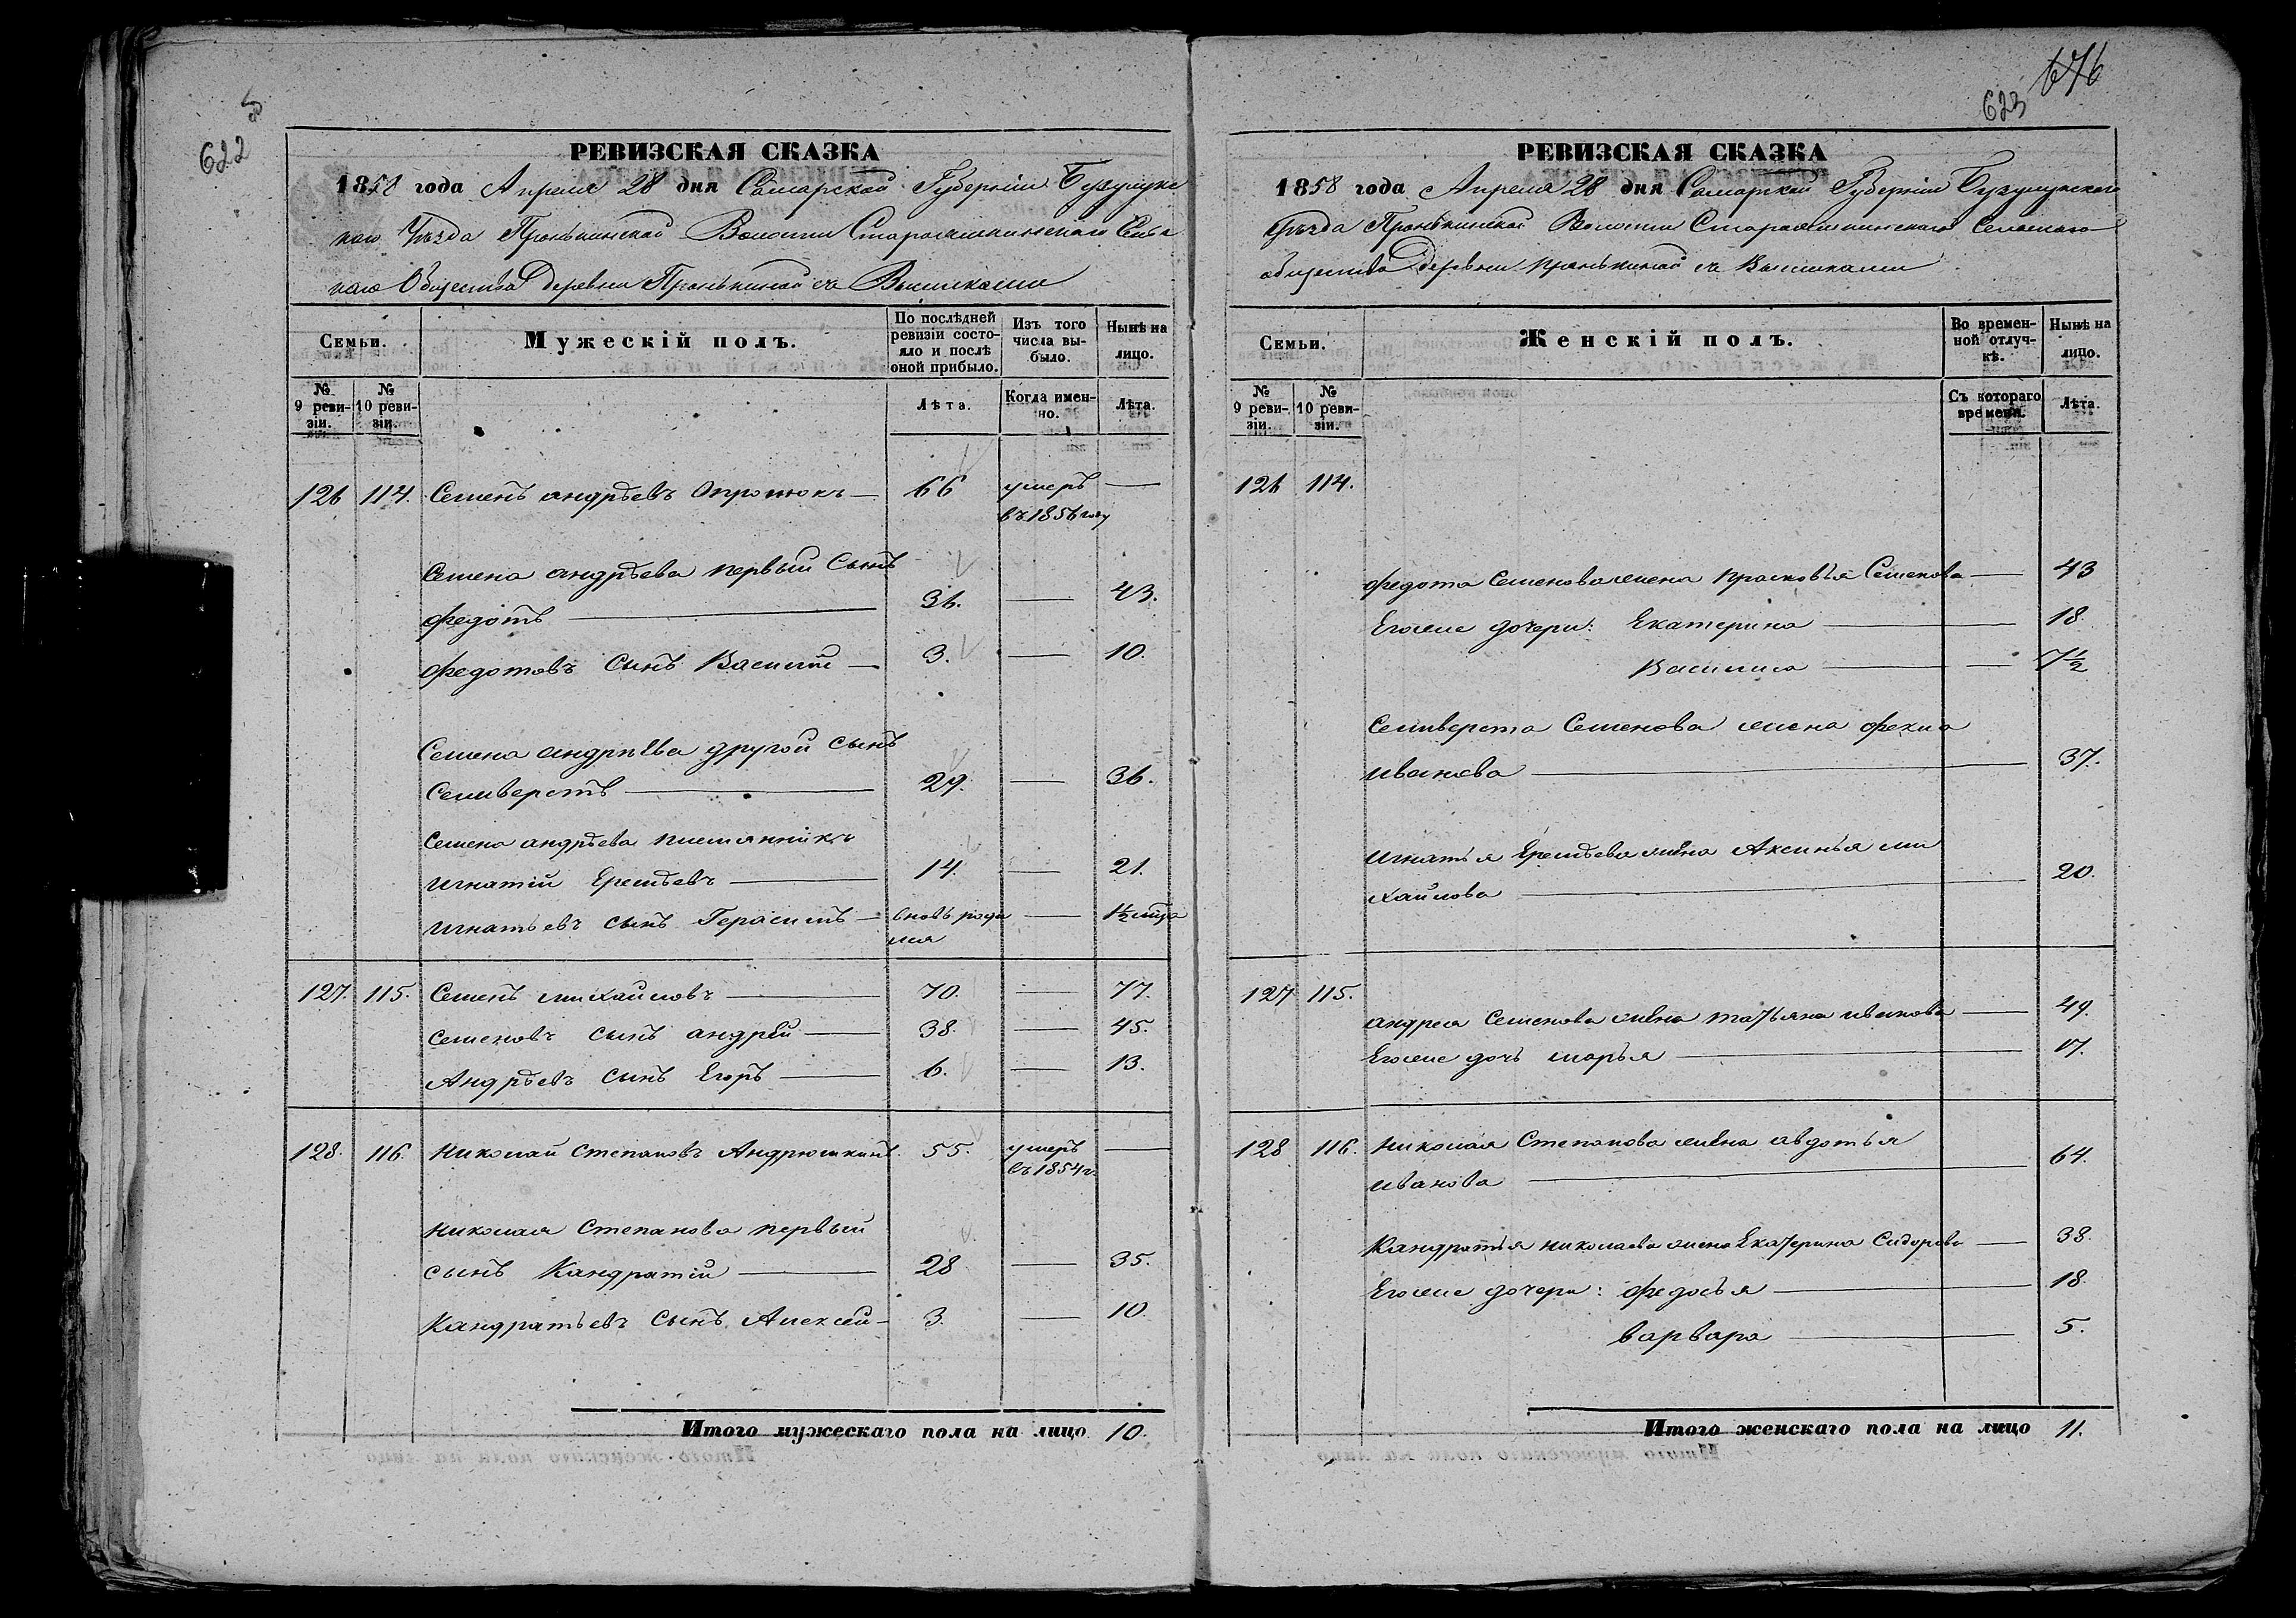 622
РЕВИЗСКАЯ СКАЗКА
1858 года Апреля 28 дня Самарской Губерніи Бузулукс
каго Уѣзда Пронькинской Волости Староашкинскаго Сельс
каго Общества Деревни Пронькиной съ Выселками
Семьи.
Мужескій полъ.
По послѣдней ревизіи состояло и послѣ оной прибыло.
Изъ того числа выбыло.
Нынѣ на лицо.
№ 9 ревизіи.
№ 10 ревизіи.
Лѣта.
Когда именно.
Лѣта.
126 114. Семенъ андрѣевъ — 66 умеръ —
въ 1856 году
Семена андрѣева первый Сынъ
федотъ — 36. — 43.
федотовъ Сынъ Василий — 3. — 10.
Семена андрѣева другой сынъ
Селиверстъ — 29. — 36.
Семена андрѣева племянникъ
игнатій Еремѣевъ — 14. — 21.
игнатьевъ сынъ Герасимъ — вновь роди — 1½
лся
127. 115. Семенъ михайловъ — 70. — 77.
Семеновъ сынъ андрей — 38. — 45.
Андрѣевъ сынъ Егоръ — 6. — 13.
128. 116. николай Степановъ Андрюшкинъ. 55. умеръ —
въ 1854 г.
николая Степанова первый
сынъ Кандратій — 28 — 35.
Кандратьевъ Сынъ Алексей — 3. — 10.
Итого мужескаго пола на лицо 10.
676
623
РЕВИЗСКАЯ СКАЗКА
1858 года Апреля 28 дня Самарской Губерніи Бузулукскаго
уѣзда Пронькинской Волости Староашкинскаго Сельскаго
общества Деревни пронькиной съ Выселками
Семьи.
Женскій полъ.
Во временной отлучкѣ.
Нынѣ на лицо.
№ 9 ревизіи.
№ 10 ревизіи.
Съ котораго времени.
Лѣта.
126 114.
федота Семенова жена прасковья Семенова — 43
Егоже дочери: Екатерина — 18.
Василиса — — 7½
Селиверста Семенова жена фекла
иванова — 37.
игнатья Еремѣева жена Аксинья ми
хайлова — 20.
127 115.
андрея Семенова жена татьяна иванова — 49.
Егоже дочь марья — 17.
128. 116. николая Степанова жена авдотья
иванова — 64.
Кандратья николаева жена Екатерина Сидорова — 38.
Егоже дочери: федосья — 18.
варвара — 5.
Итого женскаго пола на лицо 11.